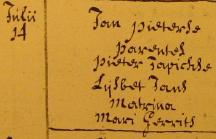 Julii
14
Jan pieterse
parentes
pieter Japickse
Lijsbet Jans
Matrina
Mari Gerrits